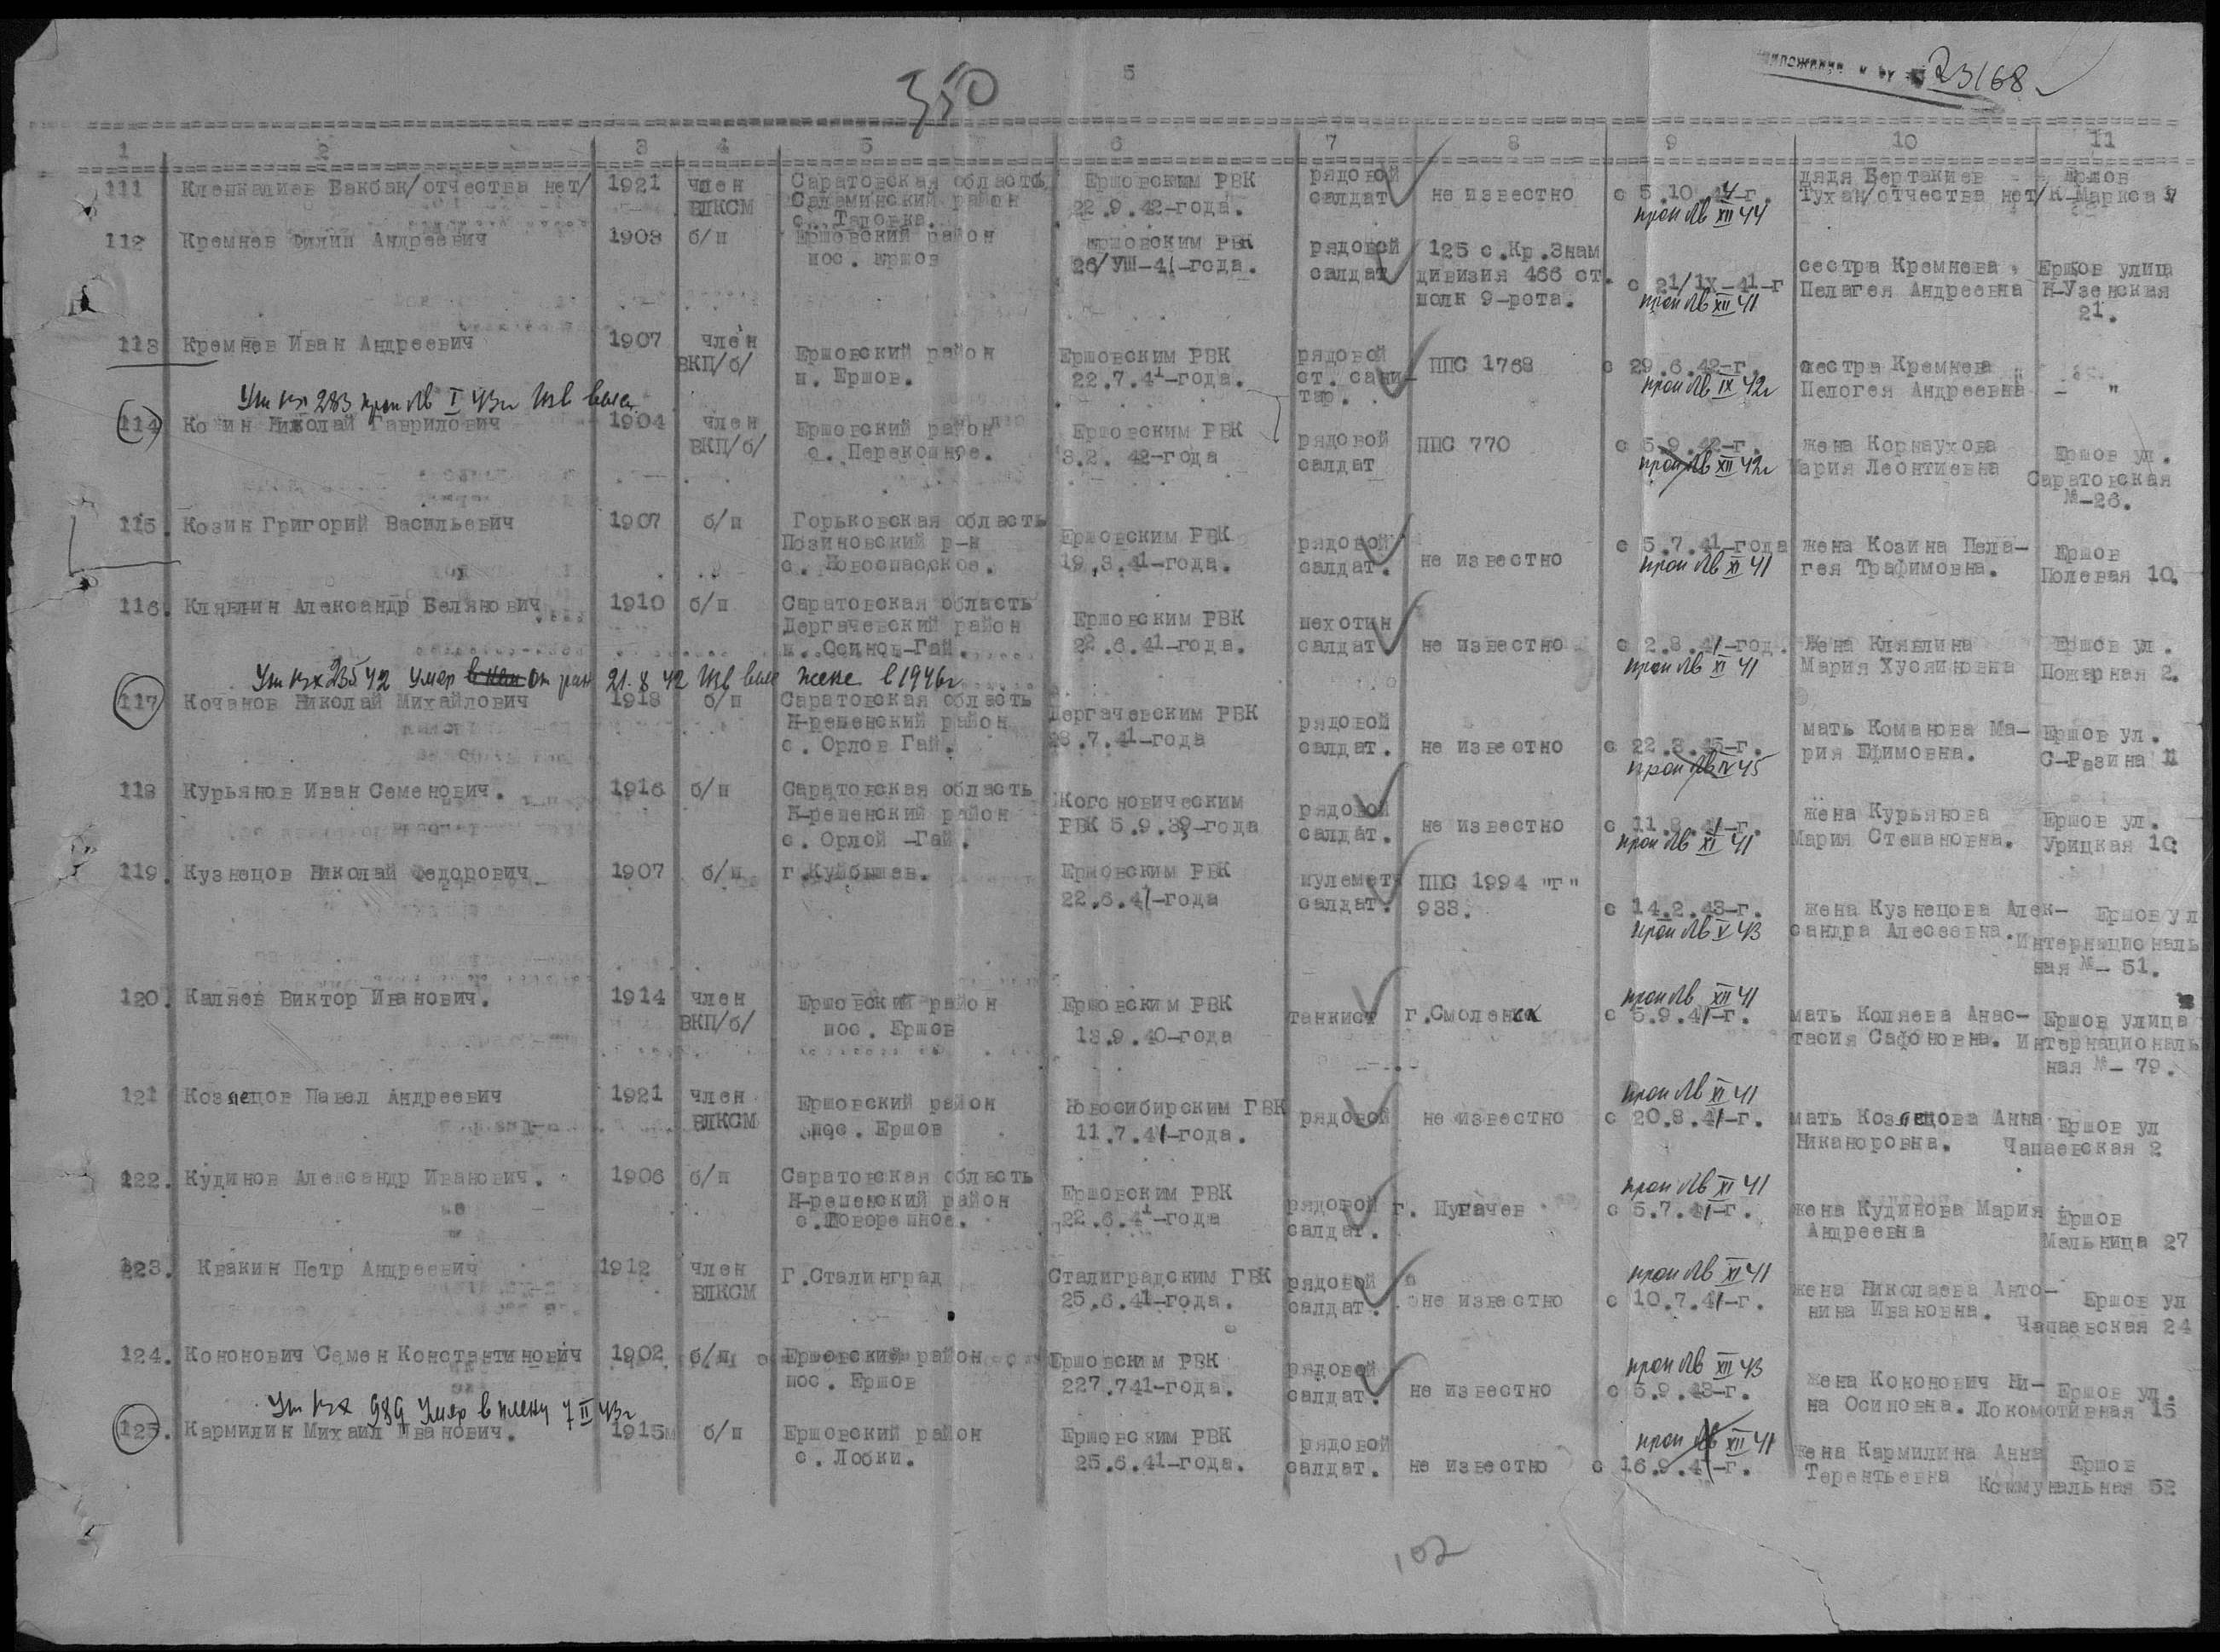 5
350
23168
1 2 3 4 5 6 7 8 9 10 11
111 Кленкалиев Бакбак/отчества нет/ 1921 член ВЛКСМ Саратовская область район с. Таловка. Ершовским РВК 22.9.42-года. рядовой салдат не известно с 5.10.44-г. дядя Бертакиев Тухан/отчества нет/ Ершов К-Маркса
проп Лв XII 44
112 Кремнев Филип Андреевич 1908 б/п Ершовский район пос. Ершов Ершовским РВК 26/УШ-41-года. рядовой салдат 125 с.Кр.Знам дивизия 466 ст. полк 9-рота. с 21/1X-41-г сестра Кремнева Пелагея Андреевна Ершов улица Н-Узенская 21.
проп Лв XII 41
113 Кремнев Иван Андреевич 1907 член ВКП/б/ Ершовский район п. Ершов. Ершовским РВК 22.7.41-года. рядовой ст. сани-тар. ППС 1768 с 29.6.42-г. сестра Кремнева Пелогея Андреевна - "
проп Лв IX 42г
Уч кх 283 проп Лв I 43г
114 Ко ин Николай Гаврилович 1904 член ВКП/б/ Ершовский район с. Перекопное. Ершовским РВК 3.2. 42-года рядовой салдат ППС 770 с 5.9.42-г. жена Корнаухова Мария Леонтиевна Ершов ул. Саратовская №-26.
проп Лв XII 42г
115. Козин Григорий Васильевич 1907 б/п Горьковская область Позиновский р-н с. Новоспасское. Ершовским РВК 19.3.41-года. рядовой салдат. не известно с 5.7.41-года жена Козина Пела-гея Трафимовна. Ершов Полевая 10.
проп Лв XI 41
116. Клявлин Александр Белянович 1910 б/п Саратовская область Дергачевский район п. Осинов-Гай. Ершовским РВК 22.6.41-года. пехотин салдат не известно с 2.8.41-год. жена Клявлина Мария Хусяиновна Ершов ул. Пожарная 2.
проп Лв XI 41
Уч кх 23542 умер от ран 21.8 42 жене в 1946г
117 Кочанов Николай Михайлович 1918 б/п Саратовская область Н-репенский район с. Орлов Гай. Дергачевским РВК 28.7.41-года рядовой салдат. не известно с 22.8.45-г. мать Команова Ма-рия Ефимовна. Ершов ул. С-Разина 11
проп Лв IV 45
118 Курьянов Иван Семенович. 1916 б/п Саратовская область Н-репенский район с. Орлой -Гай. Когоновическим РВК 5.9.39-года рядовой салдат. не известно с 11.8.41-г. жена Курьянова Мария Степановна. Ершов ул. Урицкая 10
проп Лв XI 41
119. Кузнецов Николай Федорович 1907 б/п г.Куйбышев. Ершовским РВК 22.6.41-года пулеметч салдат. ППС 1994 "Г" 933. с 14.2.43-г. жена Кузнецова Алек-сандра Алесеевна. Ершов ул Интернациональ ная №- 51.
проп Лв V 43
120. Каляев Виктор Иванович. 1914 член ВКП/б/ Ершовский район пос. Ершов Ершовским РВК 13.9.40-года танкист г.Смоленск с 5.9.41-г. мать Коляева Анас-тасия Сафоновна. Ершов улица Интернациональ ная №- 79.
проп Лв XII 41
121 Козлецов Павел Андреевич 1921 член ВЛКСМ Ершовский район пос. Ершов Новосибирским ГВК 11.7.41-года. рядовой не известно с 20.8.41-г. мать Козлецова Анна Никаноровна. Ершов ул Чапаевская 2
проп Лв XI 41
122. Кудинов Александр Иванович. 1906 б/п Саратовская область Н-репенский район с.Поворешное. Ершовским РВК 22.6.41-года рядовой салдат. г. Пугачев с 5.7.41-г. жена Кудинова Мария Андреевна Ершов Мельница 27
проп Лв XI 41
123. Квакин Петр Андреевич 1912 член ВЛКСМ Г.Сталинград Сталиградским ГВК 25.6.41-года. рядовой салдат. не известно с 10.7.41-г. жена Николаева Анто-нина Ивановна. Ершов ул Чапаевская 24
проп Лв XI 41
124. Кононович Семен Константинович 1902 б/п Ершовский район пос. Ершов Ершовским РВК 227.741-года. рядовой салдат. не известно с 5.9.43-г. жена Кононович Ни-на Осиповна. Ершов ул. Локомотивная 15
проп Лв XII 43
Уч кх 989 умер в плену 7 II 43г
125. Кармилин Михаил Иванович. 1915 б/п Ершовский район с. Лобки. Ершовским РВК 25.6.41-года. рядовой салдат. не известно с 16.9.41-г. жена Кармилина Анна Терентьевна Ершов Коммунальная 52
проп Лв XII 41
102